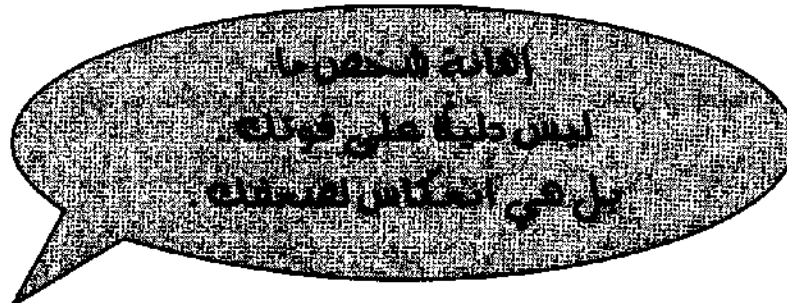 إهانة شخص ما
ليس دليلًا على قوتك.
بل هي انعكاس لضعفك.